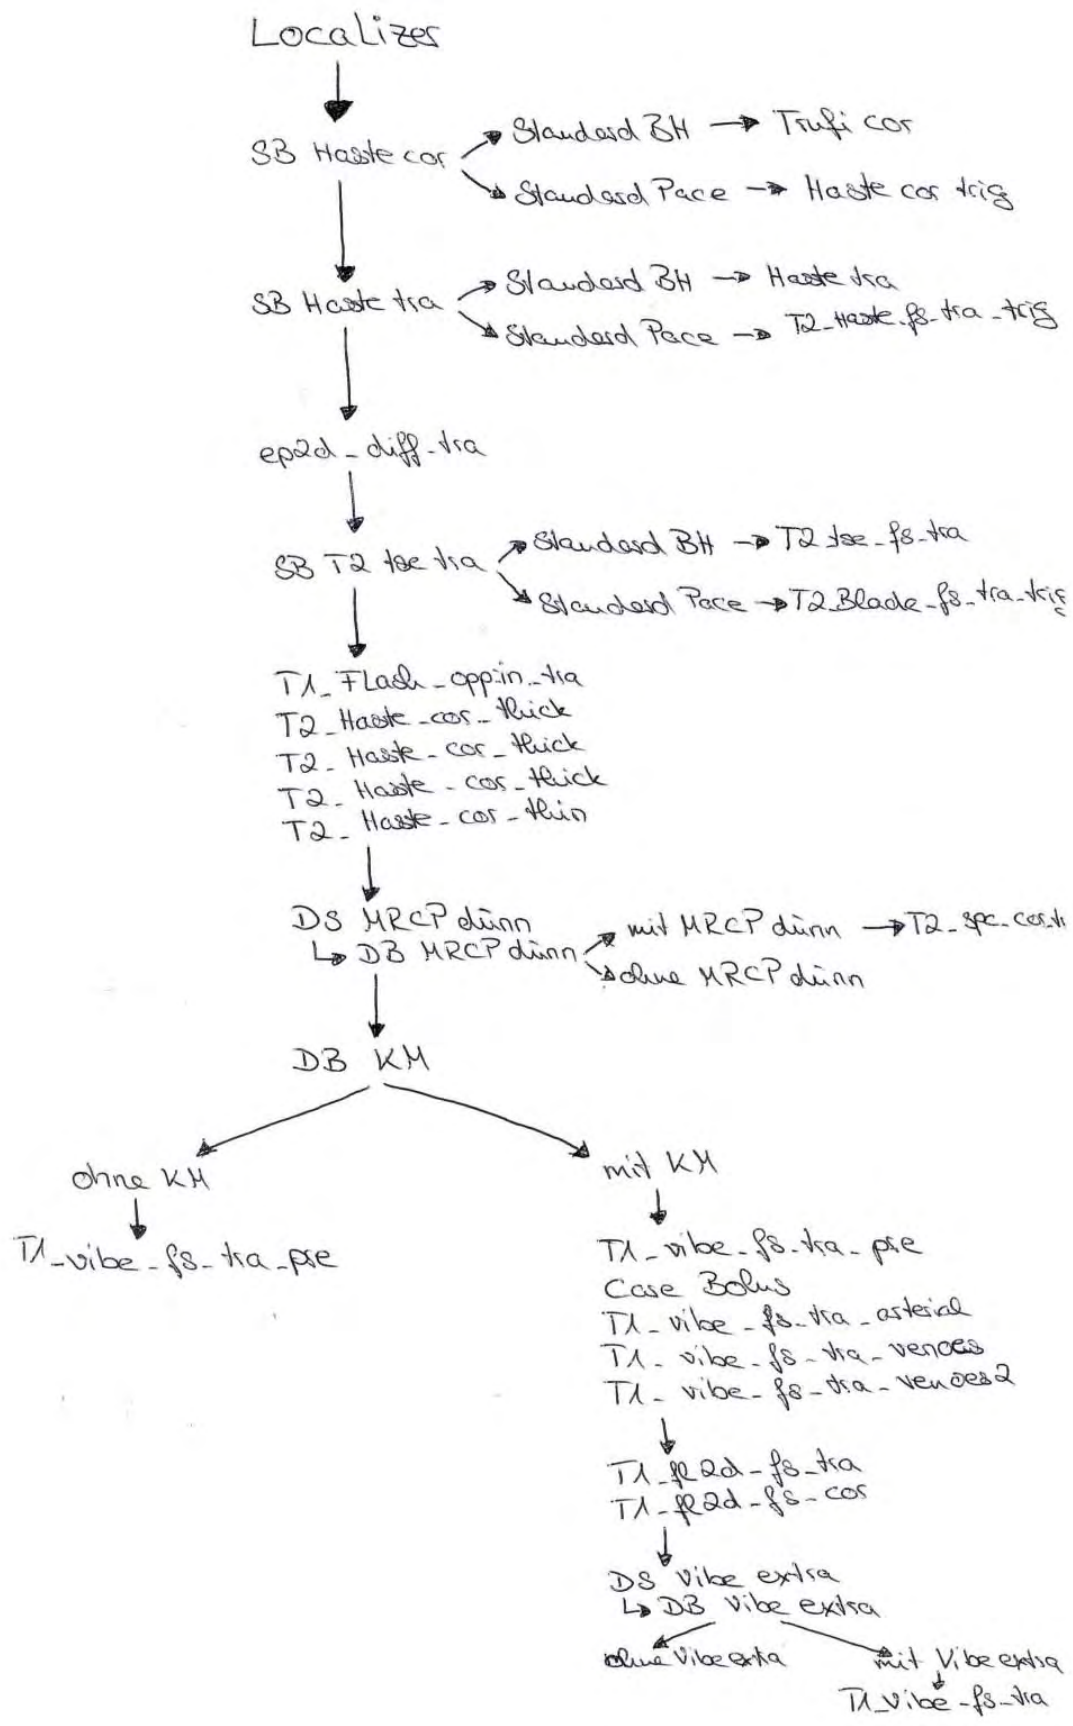 Localizer
SB Haste cor
Standard BH → Trufi cor
Standard Pace → Haste cor trig
SB Haste tra
Standard BH → Haste tra
Standard Pace → T2_Haste_fs_tra_trig
ep2d_diff_tra
SB T2 tse tra
Standard BH → T2_tse_fs_tra
Standard Pace → T2_Blade_fs_tra_trig
T1_Flash_opp-in_tra
T2_Haste_cor_thick
T2_Haste_cor_thick
T2_Haste_cor_thick
T2_Haste_cor_thin
DS MRCP dünn
↳ DB MRCP dünn
mit MRCP dünn → T2_spc_cor
ohne MRCP dünn
DB KM
ohne KM
T1_vibe_fs_tra_pre
mit KM
T1_vibe_fs_tra_pre
Care Bolus
T1_vibe_fs_tra_arterial
T1_vibe_fs_tra_venoes
T1_vibe_fs_tra_venoes2
T1_fl2d_fs_tra
T1_fl2d_fs_cor
DS Vibe extra
↳ DB Vibe extra
ohne Vibe extra
mit Vibe extra
T1_Vibe_fs_tra